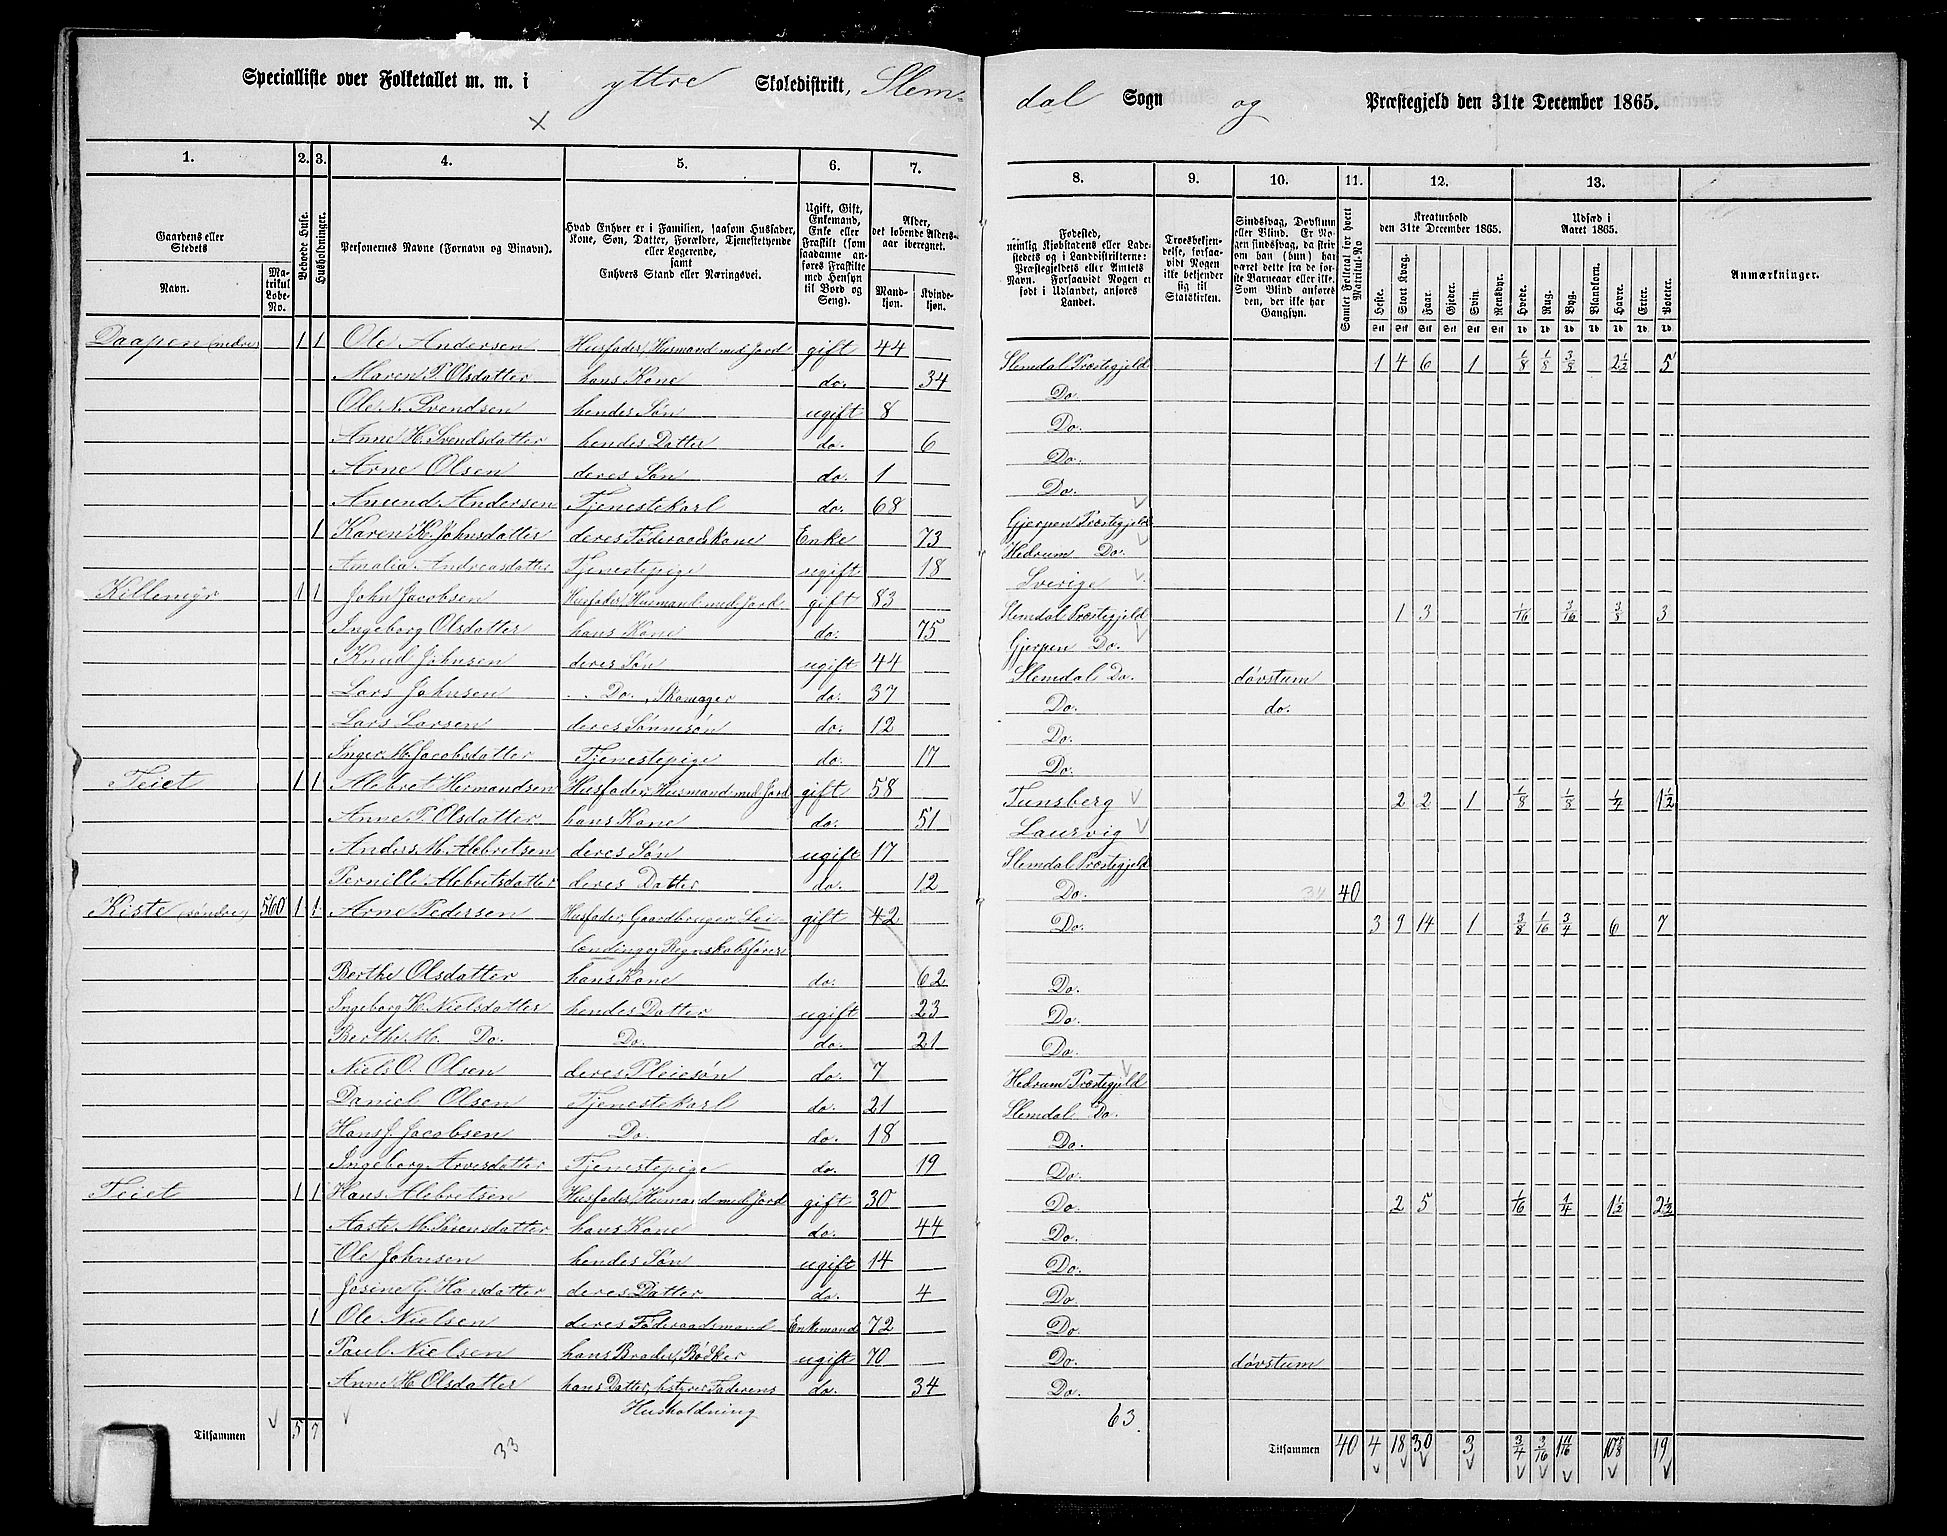 Specialliste over Folketallet m. m. i yttre Skoledistrikt, Slem-
dal Sogn og Præstegjeld den 31te December 1865.
1. 2. 3. 4. 5. 6. 7. 8. 9. 10. 11. 12. 13.
Gaardens eller Stedets Navn.
Matrikul Løbe-No.
Beboede Huse.
Husholdninger.
Personernes Navne (Fornavn og Binavn).
Hvad Enhver er i Familien, saasom Husfader, Kone, Søn, Datter, Forældre, Tjenestetyende eller Logerende, samt Enhvers Stand eller Næringsvei.
Ugift, Gift, Enkemand, Enke eller Fraskilt (som saadanne anføres Fraskilte med Hensyn til Bord og Seng).
Alder, det løbende Aldersaar iberegnet.
Mandkjøn. Kvindekjøn.
Fødested, nemlig Kjøbstadens eller Ladestedets og i Landdistrikterne: Præstegjeldets eller Amtets Navn. Forsaavidt Nogen er født i Udlandet, anføres Landet.
Troesbekjendelse, forsaavidt Nogen ikke bekjender sig til Statskirken.
Sindssvag, Døvstum eller Blind. Er Nogen sindssvag, da skrives om han (hun) har været dette fra de første Barneaar eller ikke. Som Blind anføres den, der ikke har Gangsyn.
Samlet Folketal for hvert Matrikul-No
Kreaturhold den 31te December 1865.
Heste. Stort Kvæg. Faar. Gjeder. Svin. Rensdyr.
Udsæd i Aaret 1865.
Hvede. Rug. Byg. Blandkorn. Havre. Erter. Poteter.
Anmærkninger.
Daapen (nedre) 1 1 Ole Andersen Husfader, Husmand med Jord gift 44 Slemdal Præstegjeld 1 4 6 1 1/8 1/8 3/8 2 1/2 5
Maren P. Olsdatter hans Kone do. 34 Do.
Ole N. Svendsen hendes Søn ugift 8 Do.
Anne H. Svendsdatter hendes Datter do. 6 Do.
Arne Olsen deres Søn do. 1 Do.
Amund Andersen Tjenestekarl do. 68 Gjerpen Præstegjeld
1 Karen K. Johnsdatter deres Føderaadskone Enke 73 Hedrum Do.
Amalia Andreasdatter Tjenestepige ugift 18 Sverige
Killemyr 1 1 John Jacobsen Husfader, Husmand med Jord gift 83 Slemdal Præstegjeld 1 3 1/16 3/16 3/8 3
Ingeborg Olsdatter hans Kone do. 75 Gjerpen Do.
Knud Johnsen deres Søn ugift 44 Slemdal Do. døvstum
Lars Johnsen Do., Skomager do. 37 Do. do.
Lars Larsen deres Sønnesøn do. 12 Do.
Inger M. Jacobsdatter Tjenestepige do. 17 Do.
Teiet 1 1 Alebret Hermandsen Husfader, Husmand med Jord gift 58 Tunsberg 2 2 1 1/8 1/8 1/4 1 1/2
Anne P. Olsdatter hans Kone do. 51 Laurvig
Anders M. Alebretsen deres Søn ugift 17 Slemdal Præstegjeld
Pernille Alebretsdatter deres Datter do. 12 Do. 34 40
Kiste (søndre) 560 1 1 Arne Pedersen Husfader, Gaardbruger, Lei- gift 42 Do. 3 9 14 1 3/8 1/16 3/4 6 7
lænding og Regnskabsfører
Berthe Olsdatter hans Kone do. 62 Do.
Ingeborg K. Nielsdatter hendes Datter ugift 23 Do.
Berthe M. Do. Do. do. 21 Do.
Niels O. Olsen deres Pleiesøn do. 7 Hedrum Præstegjeld
Daniel Olsen Tjenestekarl do. 21 Slemdal Do.
Hans J. Jacobsen Do. do. 18 Do.
Ingeborg Arvesdatter Tjenestepige do. 19 Do.
Teiet 1 1 Hans Alebretsen Husfader, Husmand med Jord gift 30 Do. 2 5 1/16 1/4 1 1/2 2 1/2
Aaste M. Sørensdatter hans Kone do. 44 Do.
Ole Johnsen hendes Søn ugift 14 Do.
Josine G. Hansdatter deres Datter do. 4 Do.
1 Ole Nielsen deres Føderaadsmand Enkemand 72 Do.
Paul Nielsen hans Broder, Bødker ugift 70 Do. døvstum
Anne H. Olsdatter hans Datter, bstyrer Faderens do. 34 Do.
Husholdning
63.
Tilsammen 5 7
33
Tilsammen 40 4 18 30 3 3/4 3/16 1 11/16 10 5/8 19